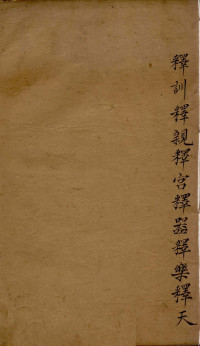 釋訓釋親釋宫釋器釋樂釋天